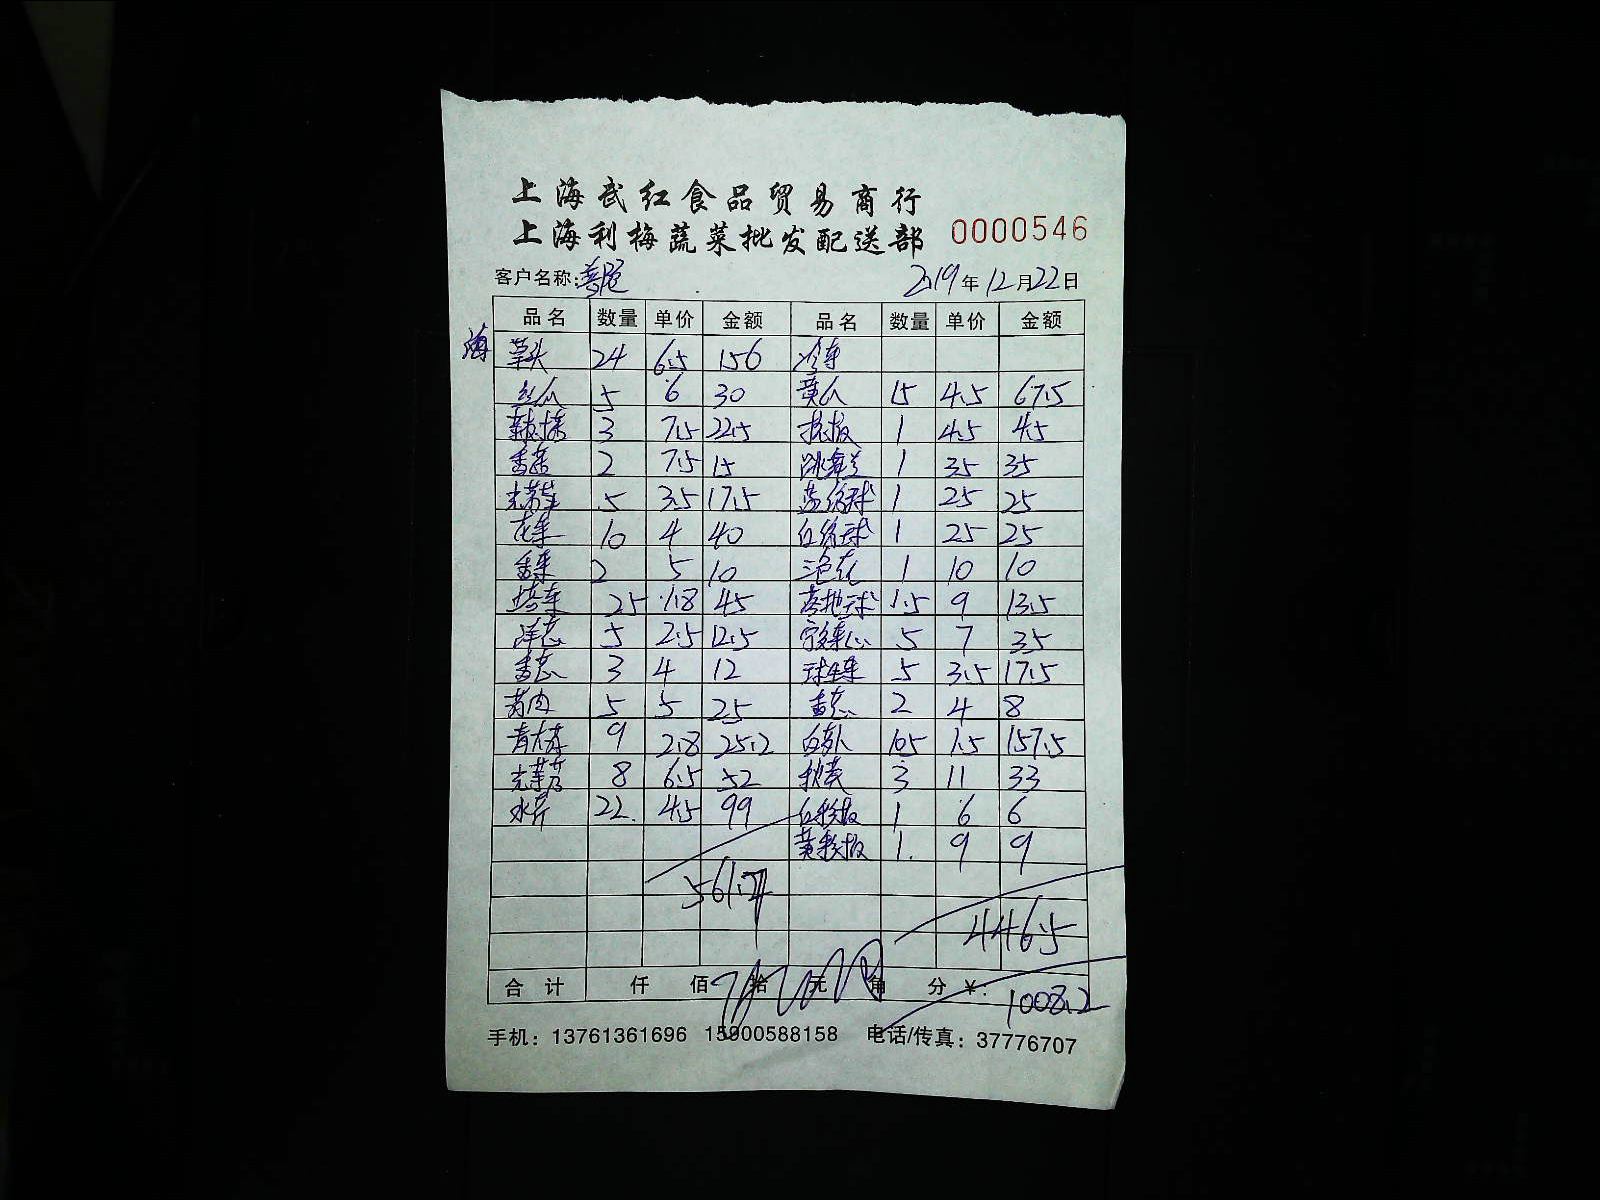 上海武红食品贸易商行
上海利梅蔬菜批发配送部 0000546
客户名称: 2019年12月22日
品名 数量 单价 金额 品名 数量 单价 金额
草头 24 6.5 156
丝瓜 5 6 30 黄瓜 15 4.5 67.5
辣椒 3 7.5 22.5 1 4.5 4.5
香菇 2 7.5 15 跳舞兰 1 35 35
光莴笋 5 3.5 17.5 1 25 25
花菜 10 4 40 1 25 25
香菜 2 5 10 三色花 1 10 10
塔菜 25 1.8 45 1.5 9 13.5
洋葱 5 2.5 12.5 5 7 35
香葱 3 4 12 球生菜 5 3.5 17.5
5 5 25 香葱 2 4 8
青大椒 9 2.8 25.2 白萝卜 105 1.5 157.5
光茭白 8 6.5 52 秋葵 3 11 33
水芹 22 4.5 99 红彩椒 1 6 6
黄彩椒 1 9 9
561.7
446.5
合计 仟 佰 拾 元 角 分 ¥: 1008.2
手机: 13761361696 15900588158 电话/传真: 37776707